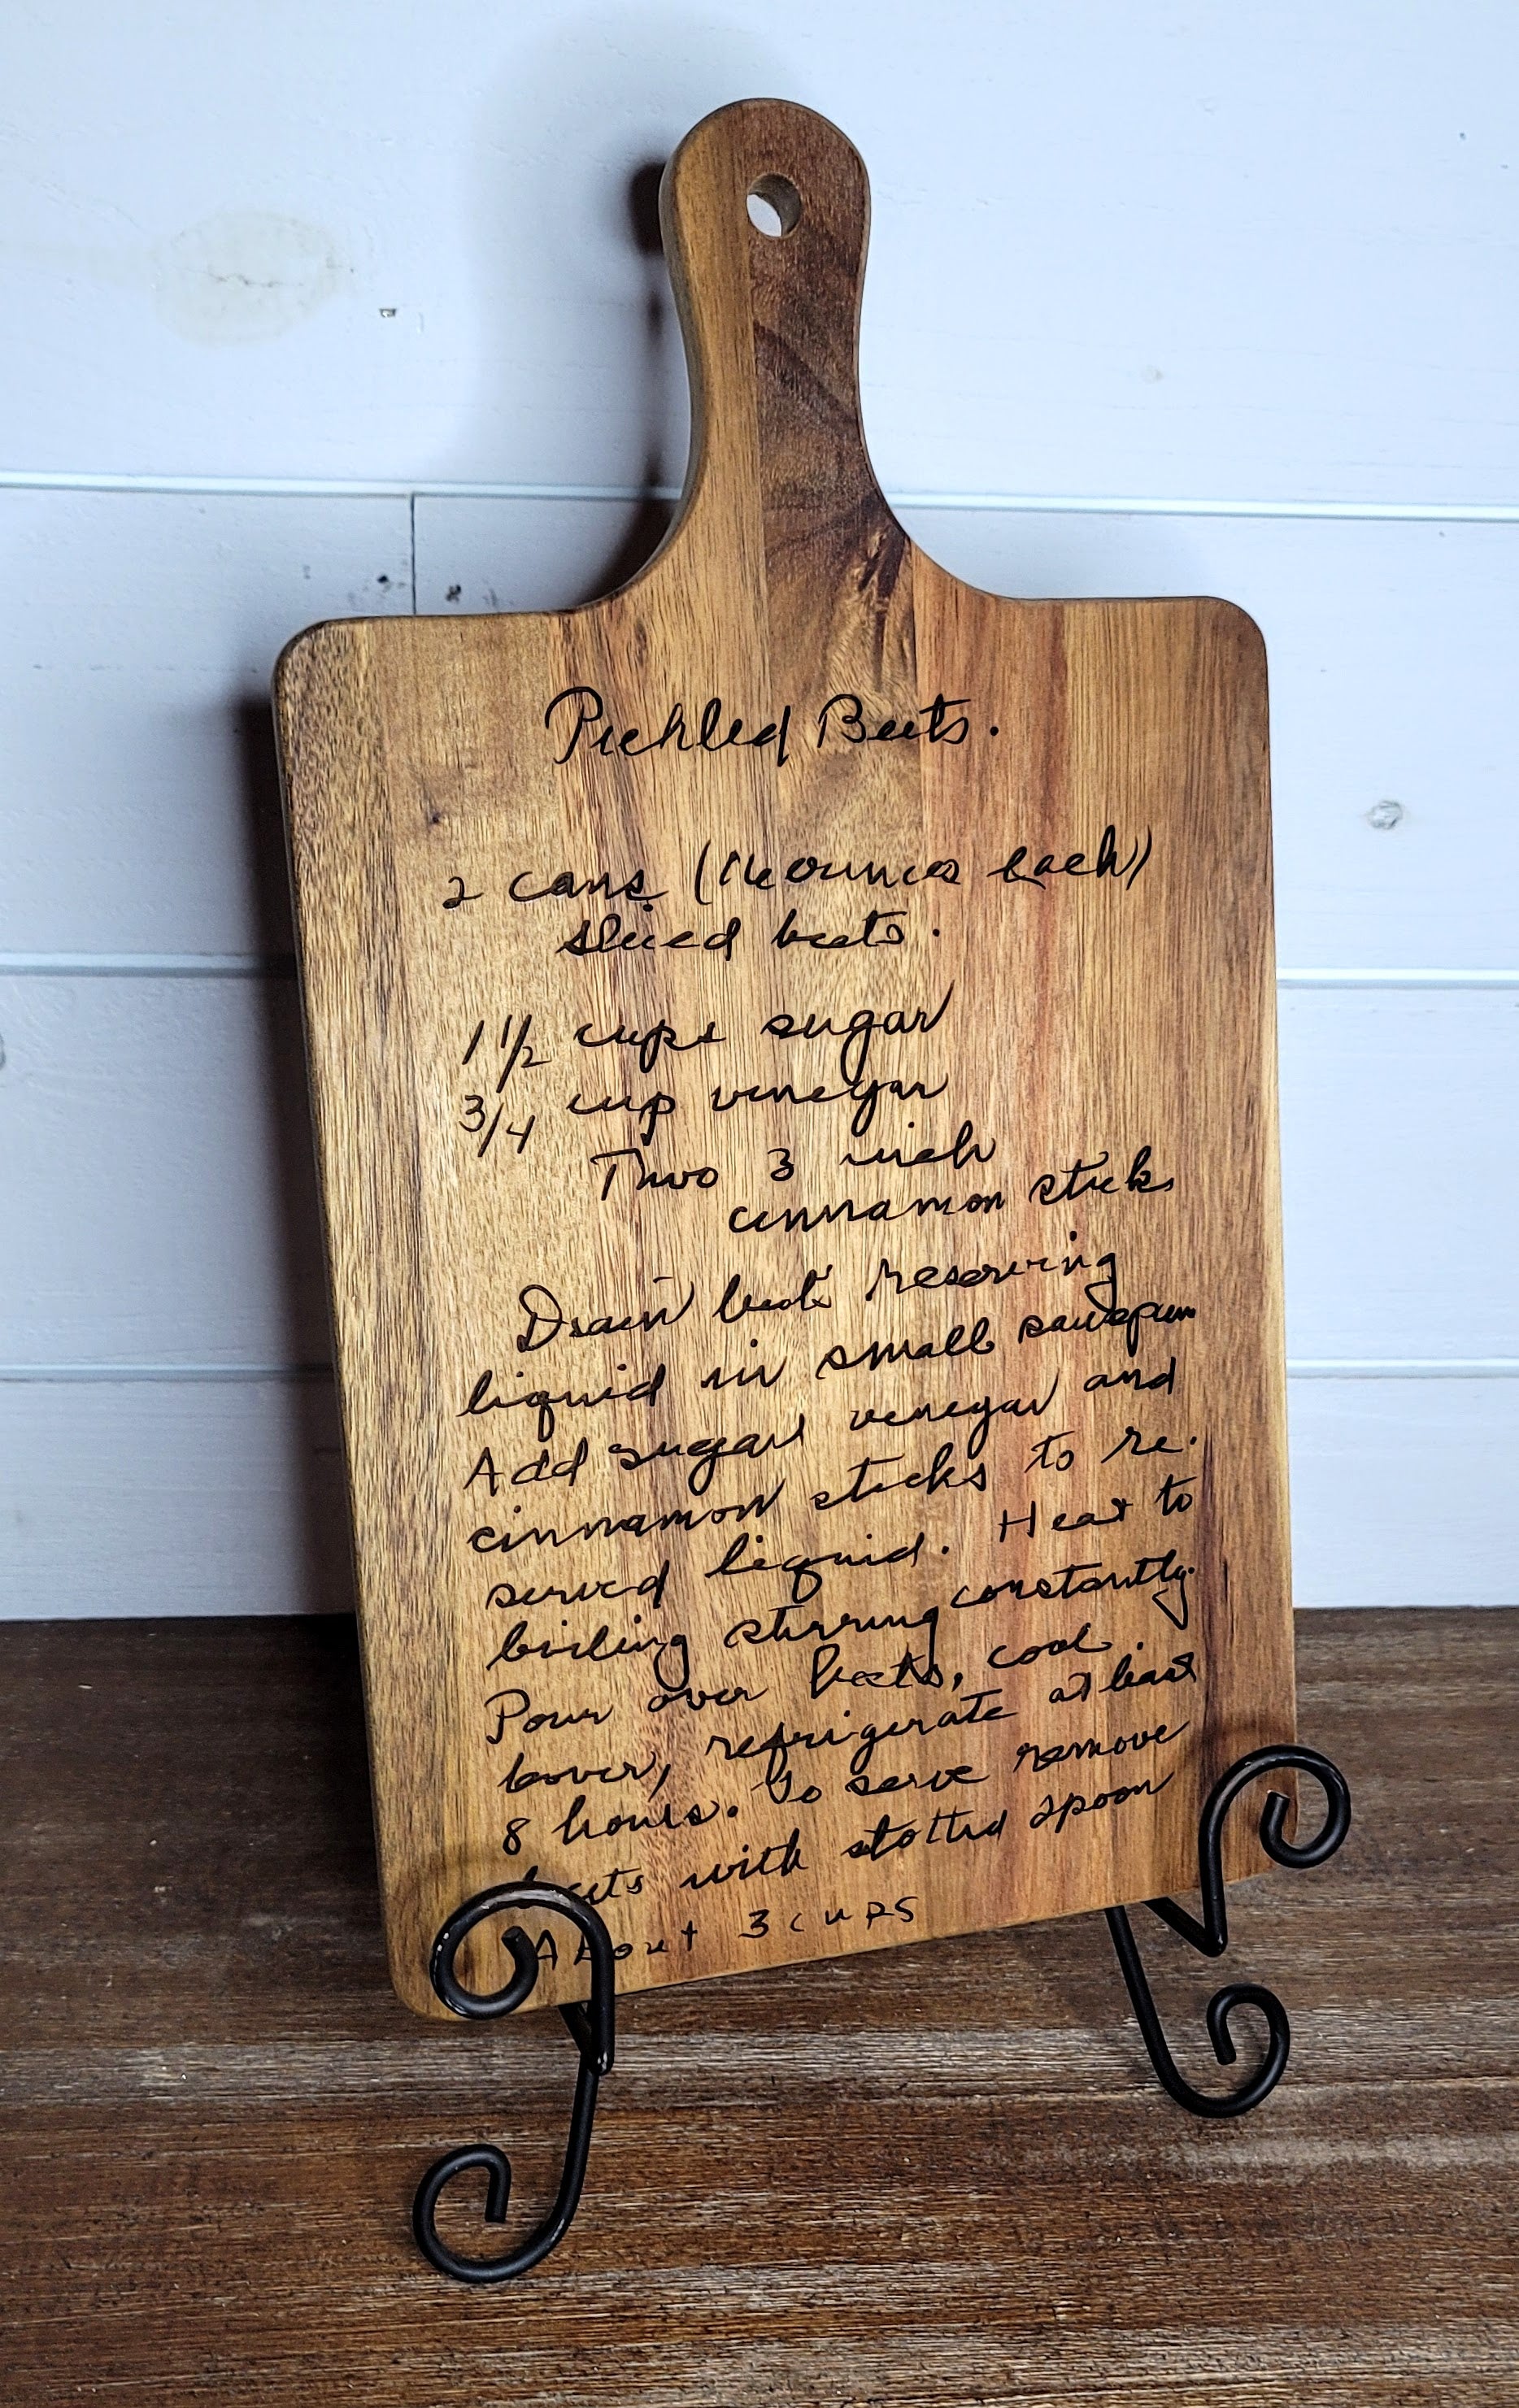 Pickled Beets.
2 cans (16 ounces each)
sliced beets.
1 1/2 cups sugar
3/4 cup vinegar
Two 3 inch
cinnamon sticks
Drain beets reserving
liquid in small saucepan
Add sugar vinegar and
cinnamon sticks to re-
served liquid. Heat to
boiling stirring constantly.
Pour over beets, cool.
Cover, refrigerate at least
8 hours. To serve remove
beets with slotted spoon
About 3 cups